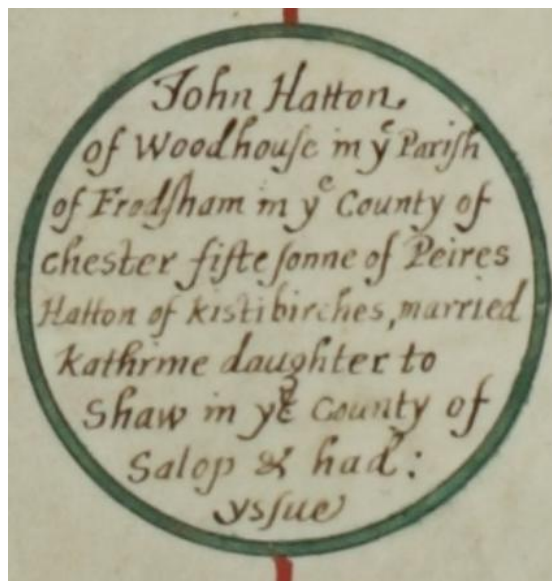 John Hatton.
of Woodhouſe in yͤ Pariſh
of Frodſham in yͤ County of
chester fifte ſonne of Peires
Hatton of kistibirches, married
kathrine daughter to
Shaw in yͤ County of
Salop & had:
ysſue